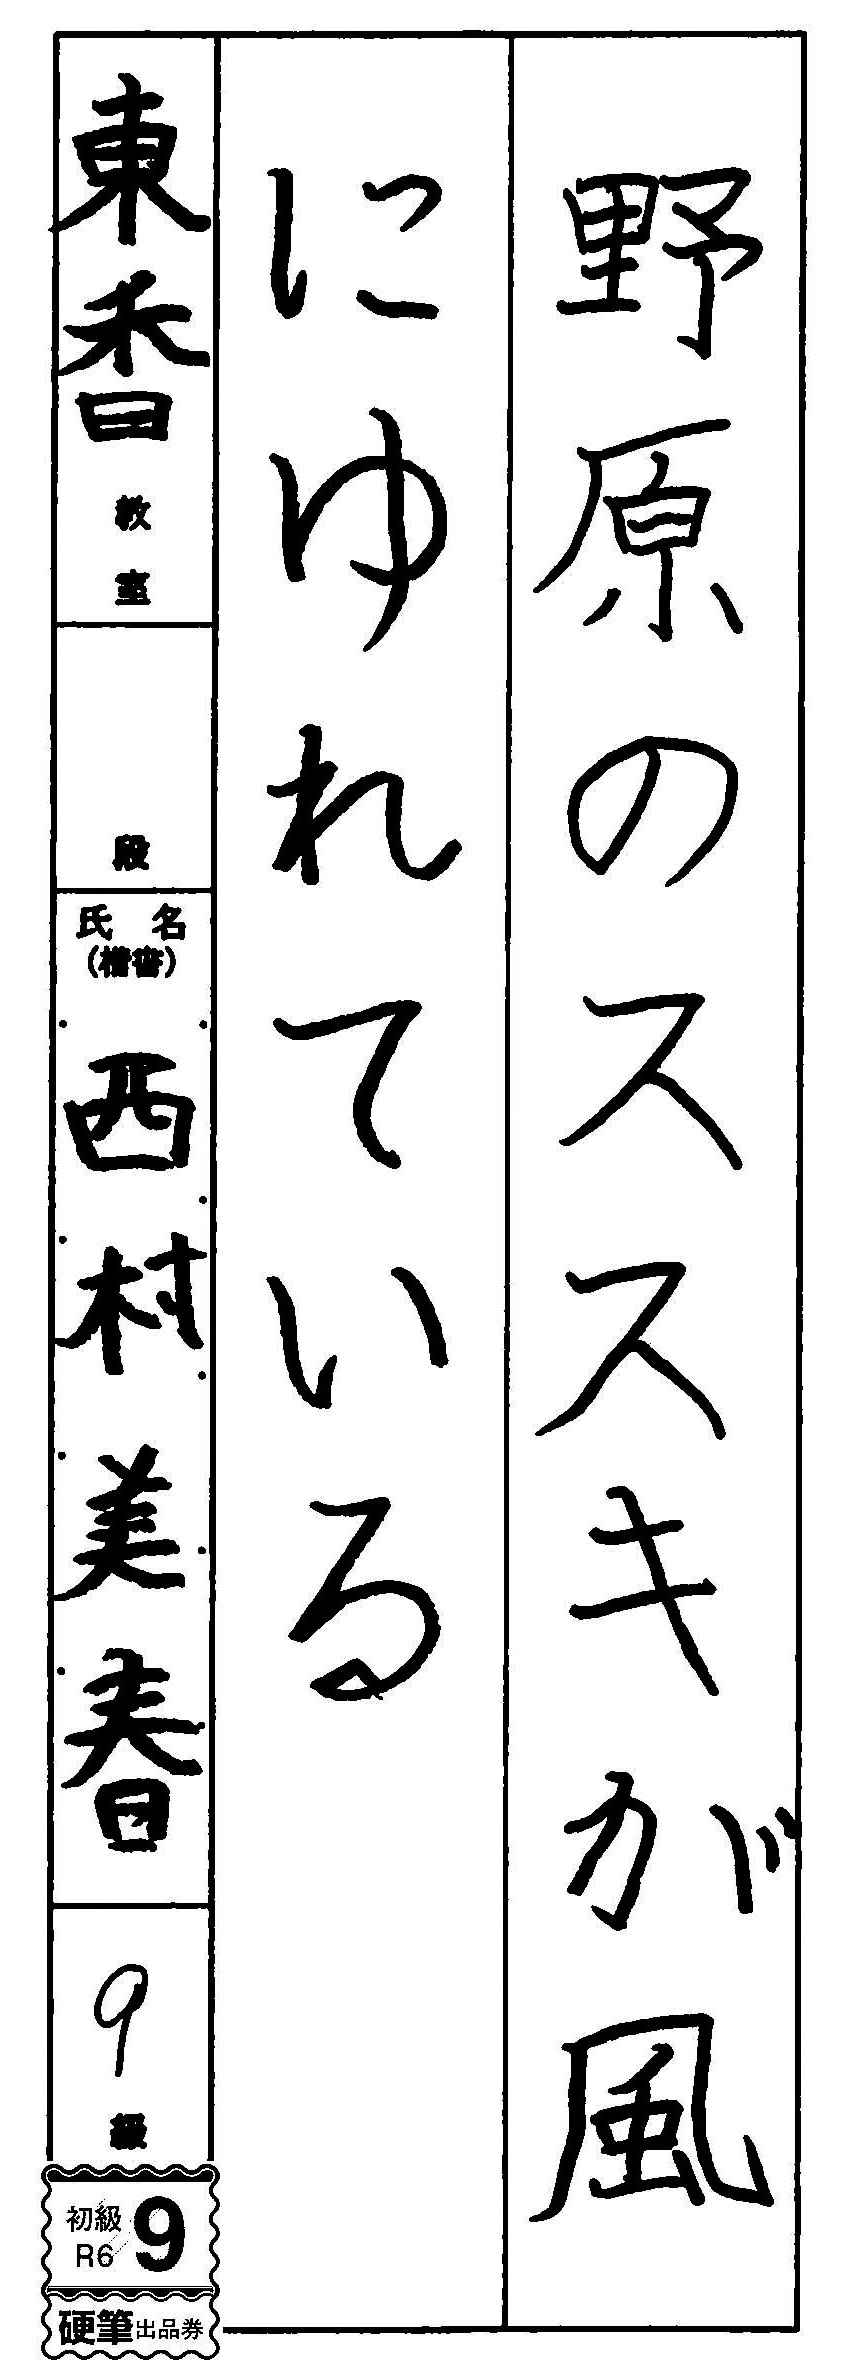 野原のススキが風
にゆれている
東香教室
段
氏名
(楷書)
西村美春
9級
初級 R6 9
硬筆出品券